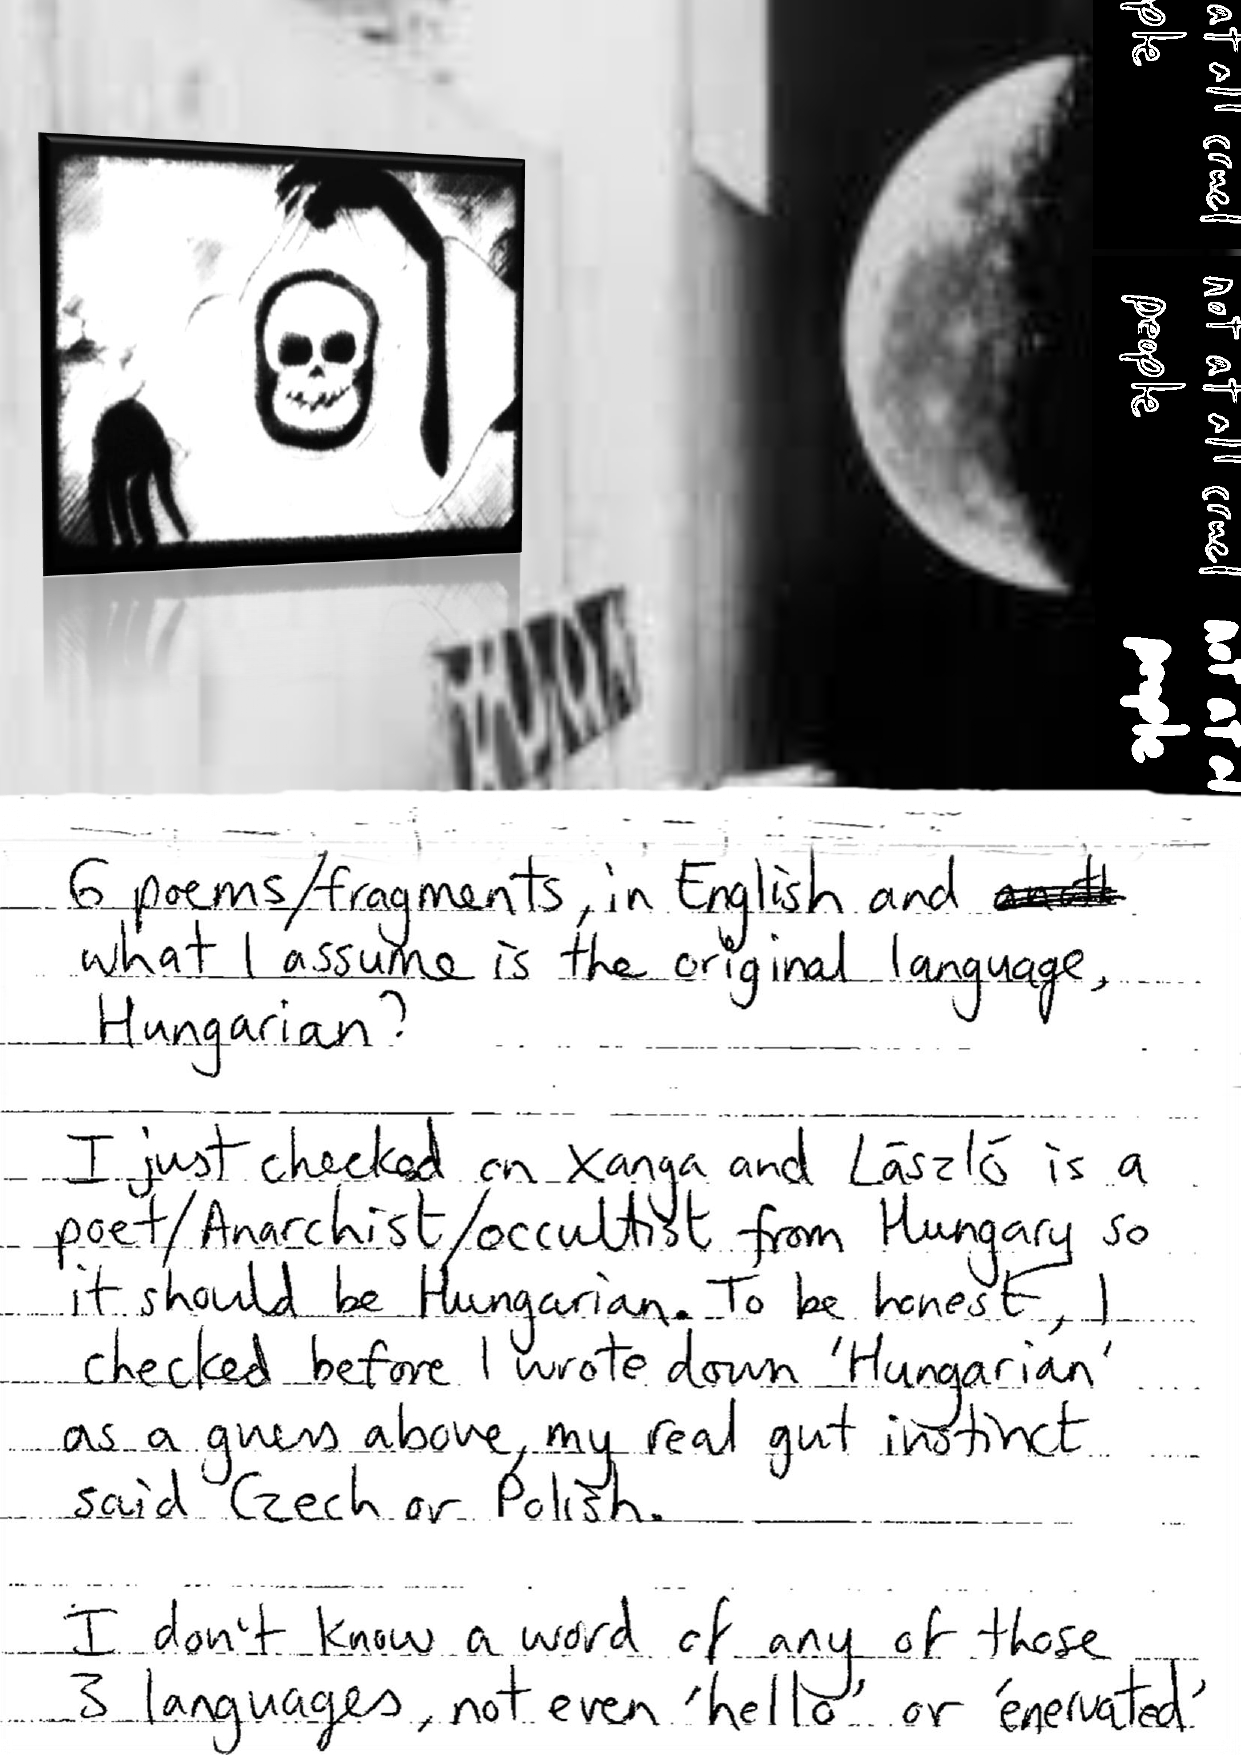 ple
at all cruel
people
not at all cruel
people
Not at al
6 poems/fragments, in English and
what I assume is the original language,
Hungarian?
I just checked on Xanga and László is a
poet/Anarchist/occultist from Hungary so
it should be Hungarian. To be honest, I
checked before I wrote down 'Hungarian'
as a guess above, my real gut instinct
said Czech or Polish.
I don't know a word of any of those
3 languages, not even 'hello' or 'enervated'